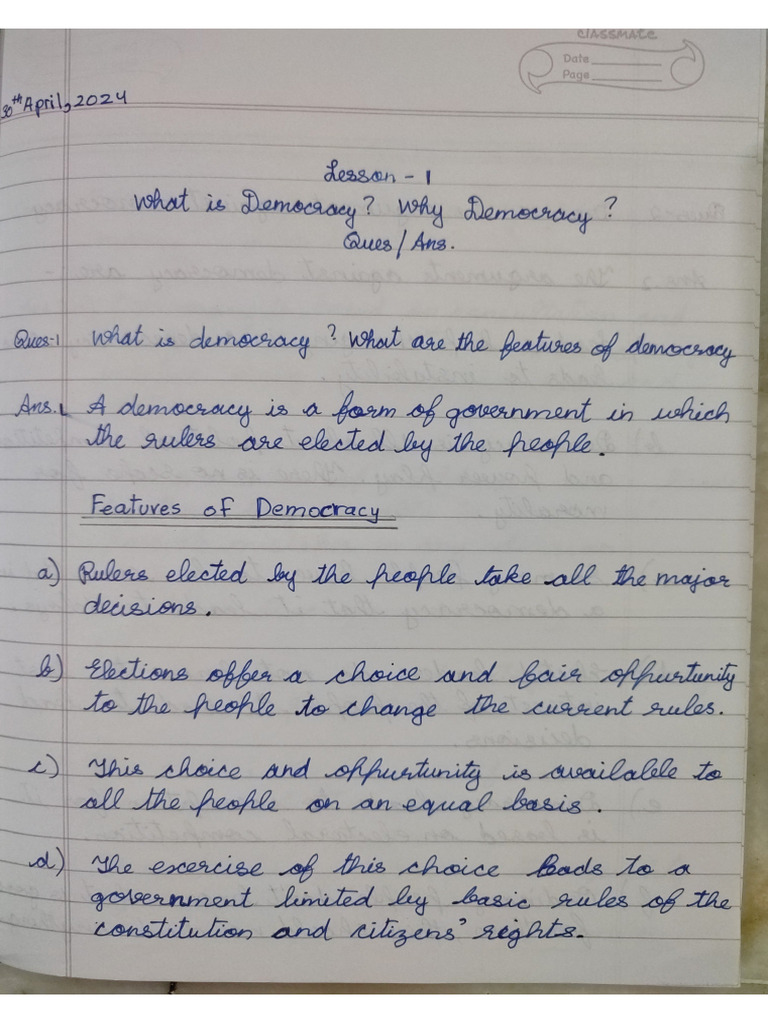 classmate
Date
Page
30th April, 2024
Lesson - 1
What is Democracy? Why Democracy?
Ques/Ans.
Ques-1 What is democracy? What are the features of democracy
Ans.1 A democracy is a form of government in which
the rulers are elected by the people.
Features of Democracy
a) Rulers elected by the people take all the major
decisions.
b) Elections offer a choice and fair oppurtunity
to the people to change the current rules.
c) This choice and oppurtunity is available to
all the people on an equal basis.
d) The exercise of this choice leads to a
government limited by basic rules of the
constitution and citizens' rights.